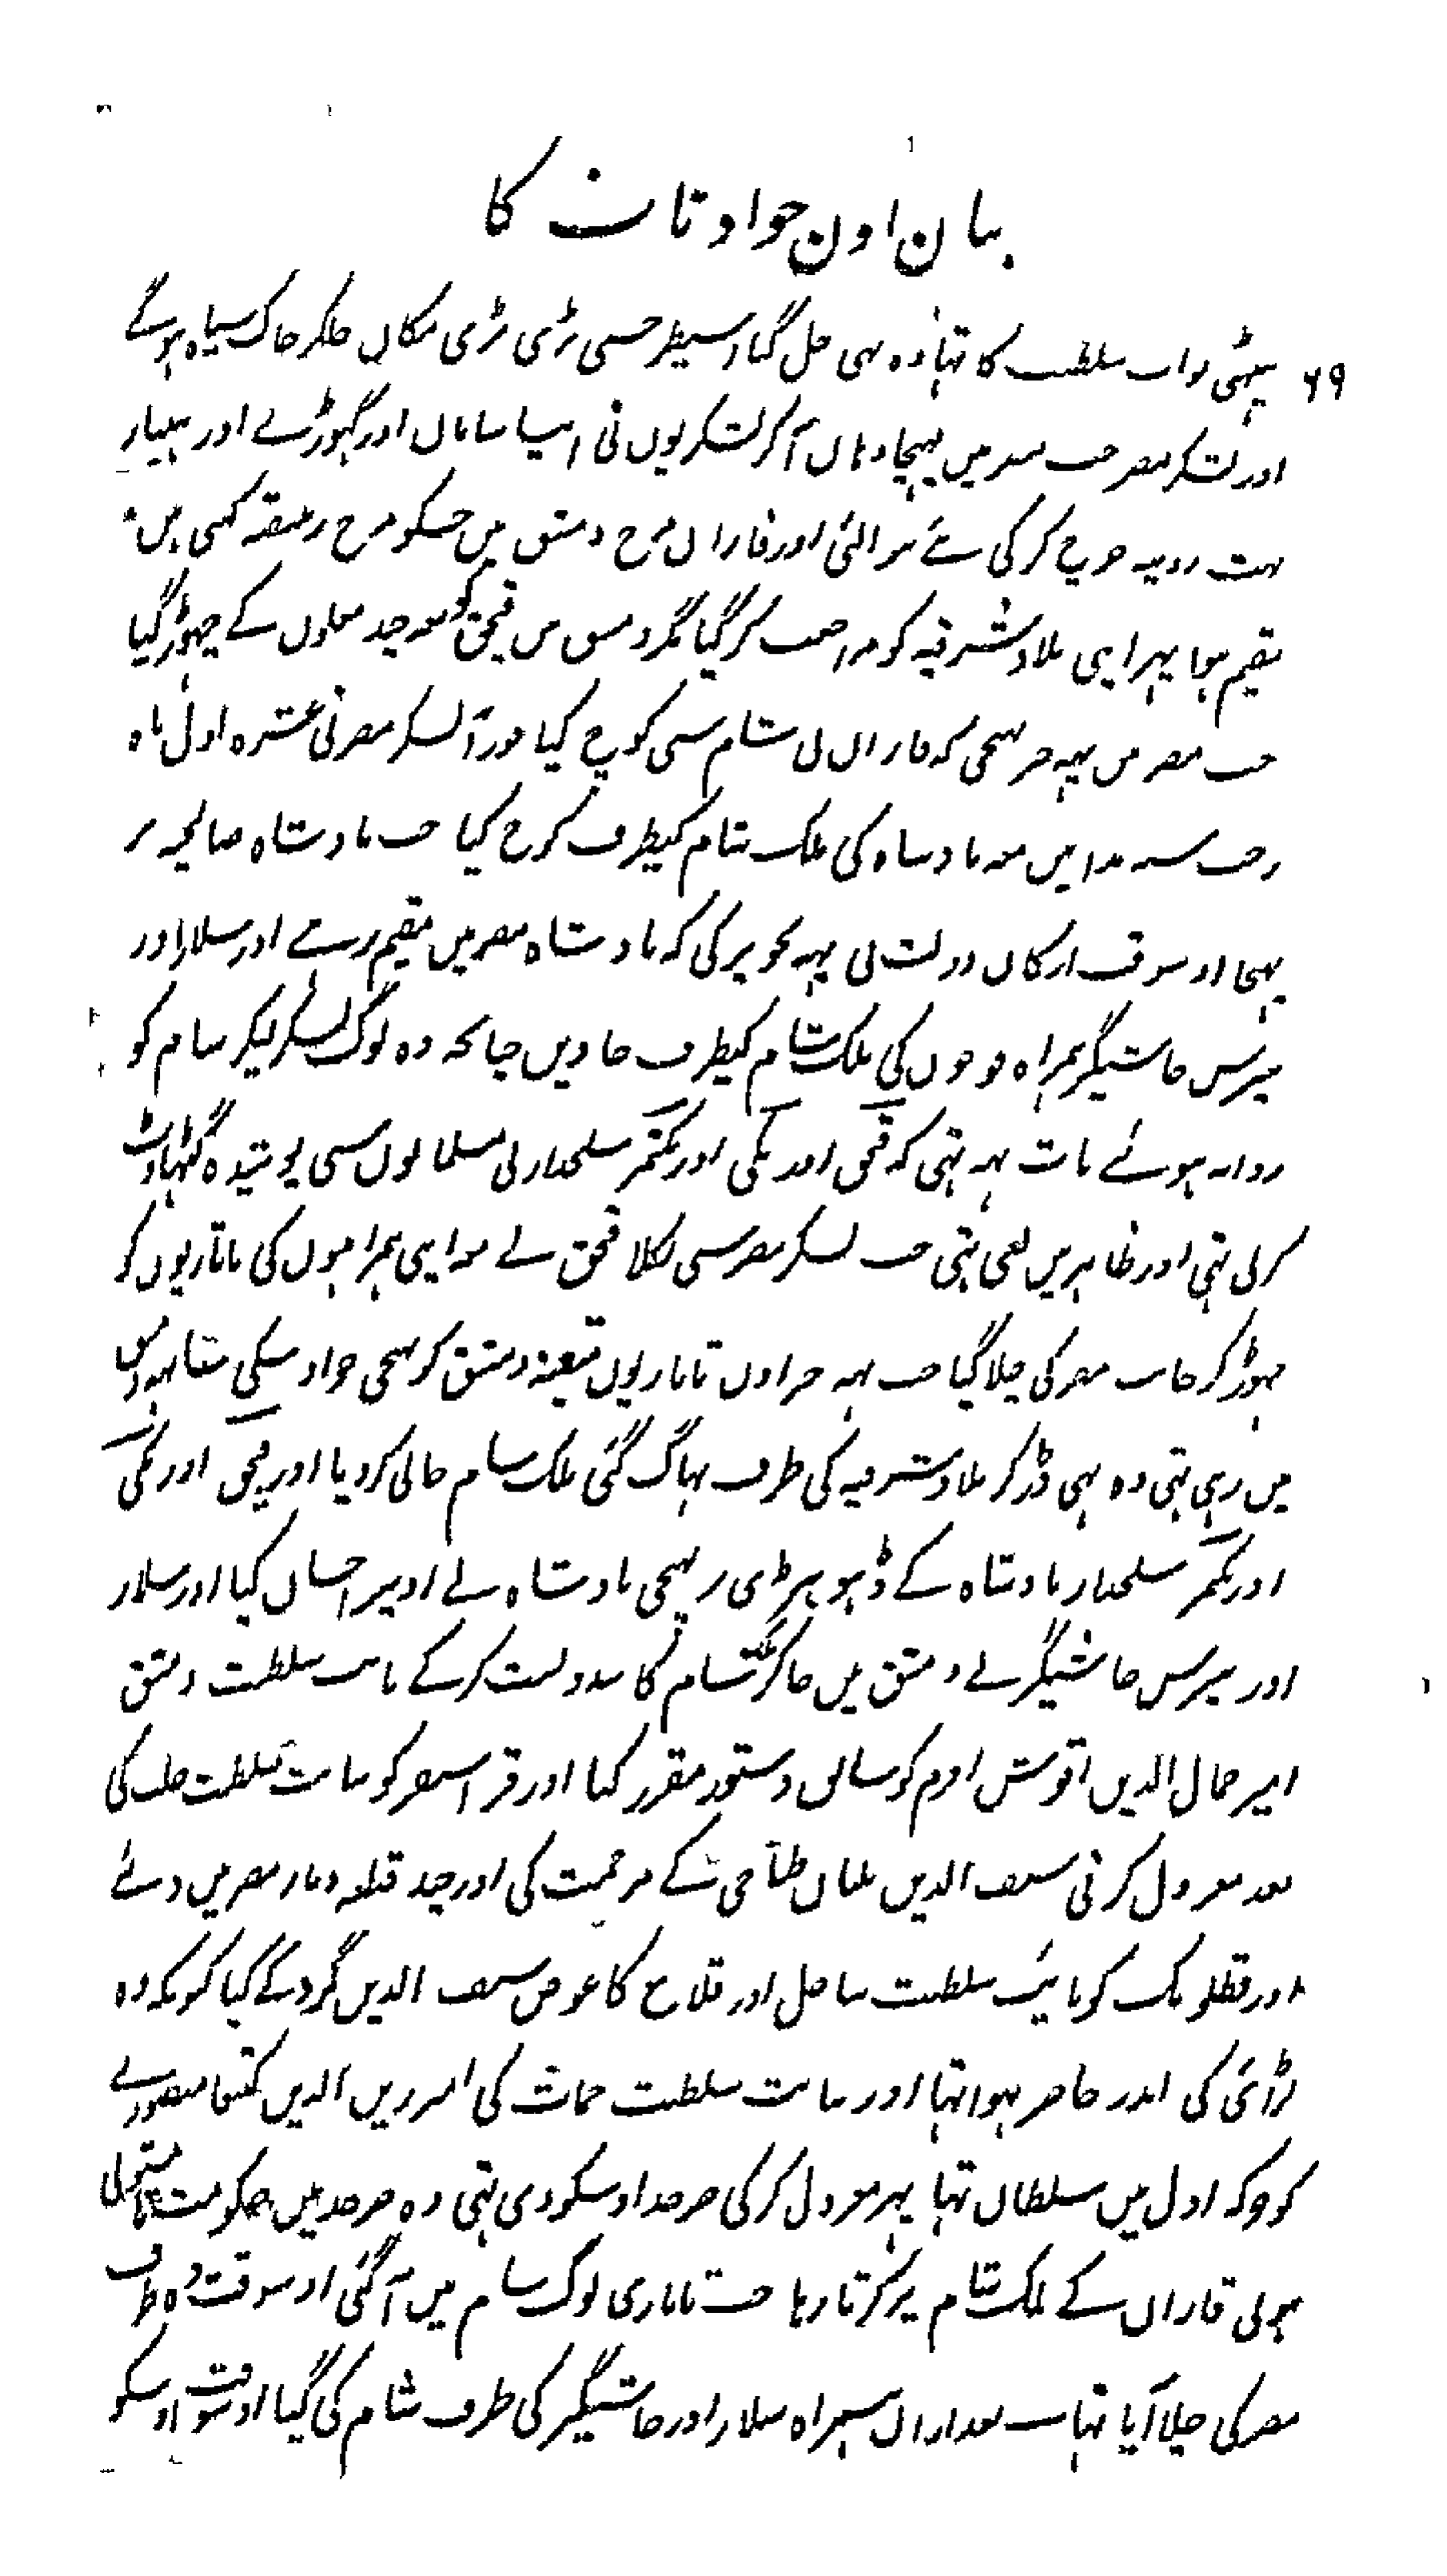 بیان اون حوادثات کا
۶۹ بیٹی نواب سلطنت کا تہا وہ بہی جل گیا اسیطرحسی بڑی بڑی مکان جلکر خاک سیاہ ہو گے
اور لشکر مصر جب مصر میں پہنچا وہاں آکر لشکریوں نی اپنا سامان اور گہوڑے اور ہتیار
بہت روپیہ خرچ کرکی نئے بنوالئی اور قازان مرج دمشق میں جسکو مرج زنبقیہ کہتی ہیں
مقیم ہوا پہر اپنی بلاد شرقیہ کو مراجعت کر گیا مگر دمشق میں قبجق کو معہ چند مغلوں کے چہوڑ گیا
جب مصر میں یہہ خبر پہنچی کہ قازان نی شام سی کوچ کیا فوراً لشکر مصر نی عشرہ اول ماہ
رجب سنہ ہذا میں معہ بادشاہ کی ملک شام کیطرف کوچ کیا جب بادشاہ صالحیہ پر
پہنچا اوسوقت ارکان دولت نی یہہ تجویز کی کہ بادشاہ مصر میں مقیم رہے اور سلار اور
بیبرس جاشنگیر ہمراہ فوجوں کی ملک شام کیطرف جاویں چنانچہ وہ لوگ لشکر لیکر شام کو
روانہ ہوئے بات یہہ تہی کہ قبجق اور بکی اور بکتمر سلحدار نی مسلمانوں سی پوشیدہ گٹہاوٹ
کرلی تہی اور ظاہر میں یعنی تہی جب لشکر مصر سی نکلا قبجق نے معہ اپنی ہمراہیوں کی تاتاریوں کو
چہوڑ کر جانب مصر کی چلا گیا جب یہہ خبر اون تاتاریوں متعینہ دمشق کو پہنچی جو اوسکی ساتہہ دمشق
میں رہی تہی وہ بہی ڈر کر بلاد شرقیہ کی طرف بہاگ گئی ملک شام خالی کر دیا اور قبجق اور بکی
اور بکتمر سلحدار بادشاہ کے ڈیوہڑی پر پہنچی بادشاہ نے اونپر احسان کیا اور سلار
اور بیبرس جاشنیگر نے دمشق میں جاکر شام کا بندوبست کرکے نایب سلطنت دمشق
امیر جمال الدین اقوش افرم کو سابق دستور مقرر کیا اور قراسنقر کو نیابت سلطنت حلب کی
بعد معزول کرنی سیف الدین بلبان طباخی کے مرحمت کی اور چند قطعہ دیار مصر میں دئے
اور قطلوبک کو نایب سلطنت ساحل اور قلاع کا عوض سیف الدین کرد کے کیا کیونکہ وہ
لڑائی کی اندر حاضر ہوا تہا اور نیابت سلطنت حماۃ کی امیر زین الدین کتبغا منصوری
کو جو کہ اول میں سلطان تہا پہر معزول کرکی صرخد اوسکو دی تہی وہ صرخد میں حکومت تا مستولی
ہونی قازان کے ملک شام پر کرتا رہا جب تاتاری لوگ شام میں آگئی اوسوقت وہ طرف
مصر کی چلا آیا تہا بعد ازان ہمراہ سلار اور جاشنیگیر کی طرف شام کی گیا اوسوقت اوسکو